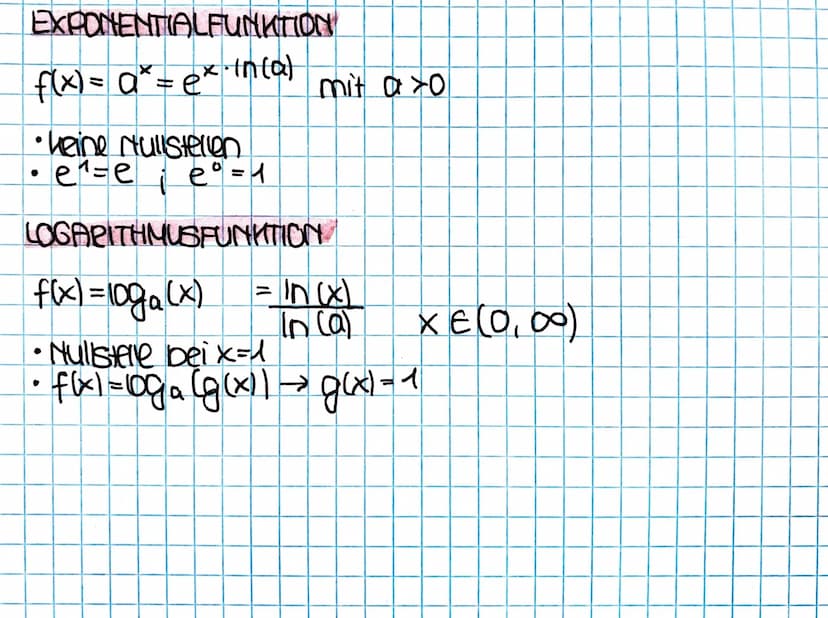 EXPONENTIALFUNKTION
f(x) = aˣ = e^(x·ln(a)) mit a>0
• keine Nullstellen
• e¹=e ; e⁰=1
LOGARITHMUSFUNKTION
f(x) = logₐ(x) = ln(x)/ln(a) x ∈ (0, ∞)
• Nullstelle bei x=1
• f(x)=logₐ(g(x)) → g(x)=1